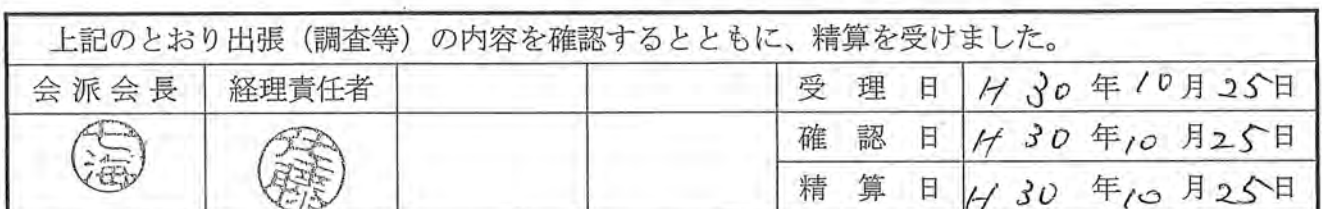 上記のとおり出張（調査等）の内容を確認するとともに、精算を受けました。
会派会長 経理責任者 受理日 H30年10月25日
七海 確認日 H30年10月25日
精算日 H30年10月25日